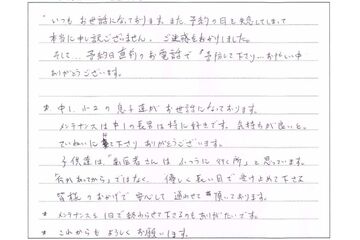 ・いつもお世話になっております。また、予約の日を失念してしまって
本当に申し訳ございません。ご迷惑をおかけしました。
そして… 予約日直前のお電話で
ありがとうございます。
＊ 中1、小2の息子達がお世話になっております。
メンテナンスは中1の長男は特に好きです。気持ちが良いと。
ていねいに して下さり ありがとうございます。
子供達は、「歯医者さんは ふつうに 行く所」と思っています。
ではなく、優しく長い目で受け止めて下さる
皆様のおかげで安心して通わせて頂いております。
＊ メンテナンスも1日で終わらせて下さるのもありがたいです。
＊ これからも よろしくお願いします。